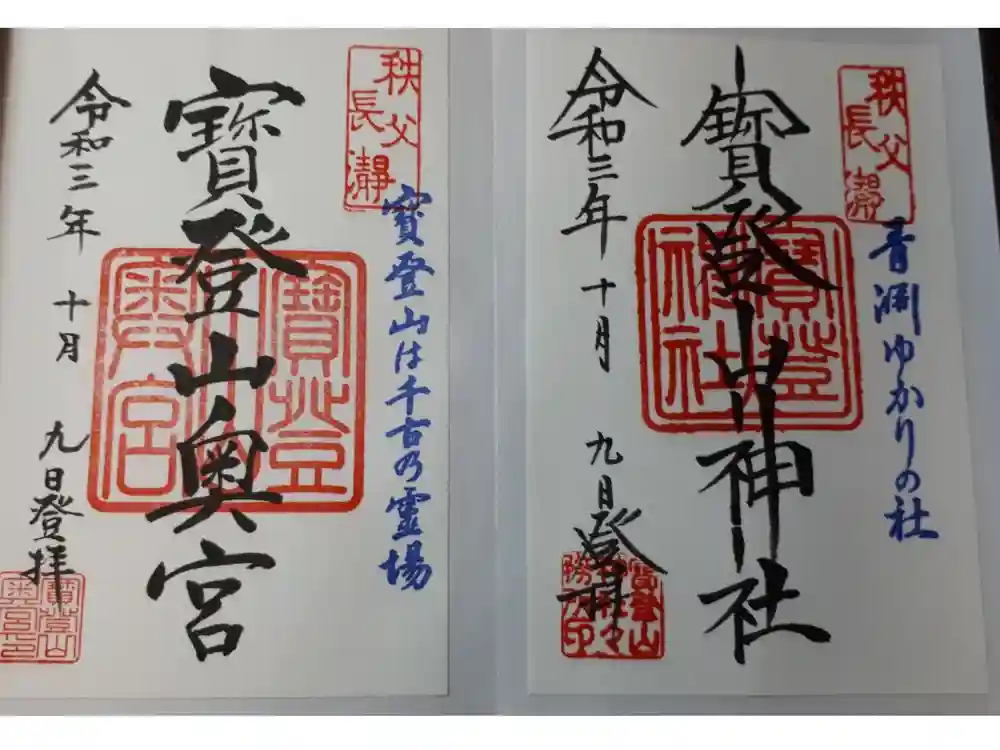 秩父
長瀞
青淵ゆかりの社
寶登山神社
令和三年十月九日登拝
秩父
長瀞
寶登山は千古の霊場
寶登山奥宮
令和三年十月九日登拝
寶登山
奥宮
寶登山
神社
寶登山
奥宮印